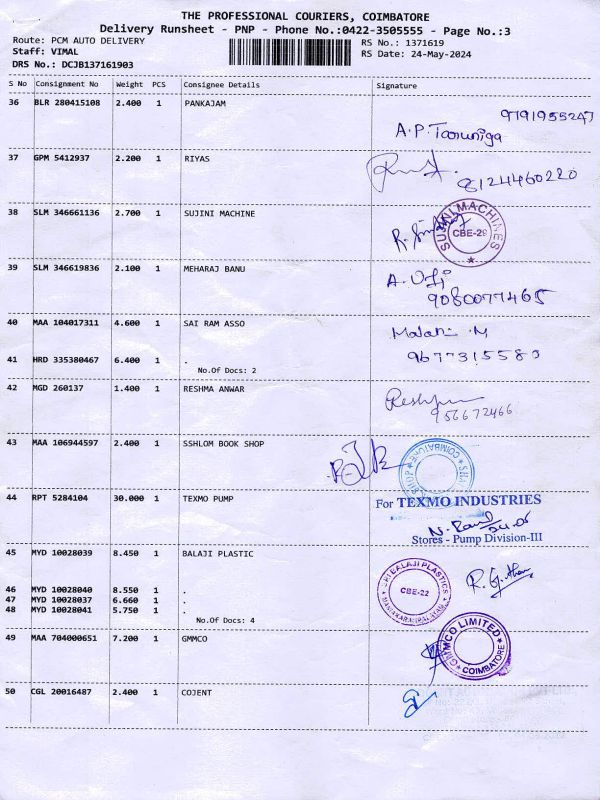 THE PROFESSIONAL COURIERS, COIMBATORE
Delivery Runsheet - PNP - Phone No.:0422-3505555 - Page No.:3
Route: PCM AUTO DELIVERY RS No.: 1371619
Staff: VIMAL RS Date: 24-May-2024
DRS No.: DCJB137161903
S No Consignment No Weight PCS Consignee Details Signature
36 BLR 280415108 2.400 1 PANKAJAM
9791955247
A.P.
37 GPM 5412937 2.200 1 RIYAS
8124460220
38 SLM 346661136 2.700 1 SUJINI MACHINE
SUJINI MACHINES
CBE-29
39 SLM 346619836 2.100 1 MEHARAJ BANU
9080077465
40 MAA 104017311 4.600 1 SAI RAM ASSO
41 HRD 335380467 6.400 1 .
9677315583
No.Of Docs: 2
42 MGD 260137 1.400 1 RESHMA ANWAR
43 MAA 106944597 2.400 1 SSHLOM BOOK SHOP
COIMBATORE
44 RPT 5284104 30.000 1 TEXMO PUMP
For TEXMO INDUSTRIES
Stores - Pump Division-III
45 MYD 10028039 8.450 1 BALAJI PLASTIC
SRI BALAJI PLASTICS
CBE-22
46 MYD 10028040 8.550 1 .
47 MYD 10028037 6.660 1 .
48 MYD 10028041 5.750 1 .
No.Of Docs: 4
49 MAA 704000651 7.200 1 GMMCO
GMMCO LIMITED
COIMBATORE
50 CGL 20016487 2.400 1 COJENT